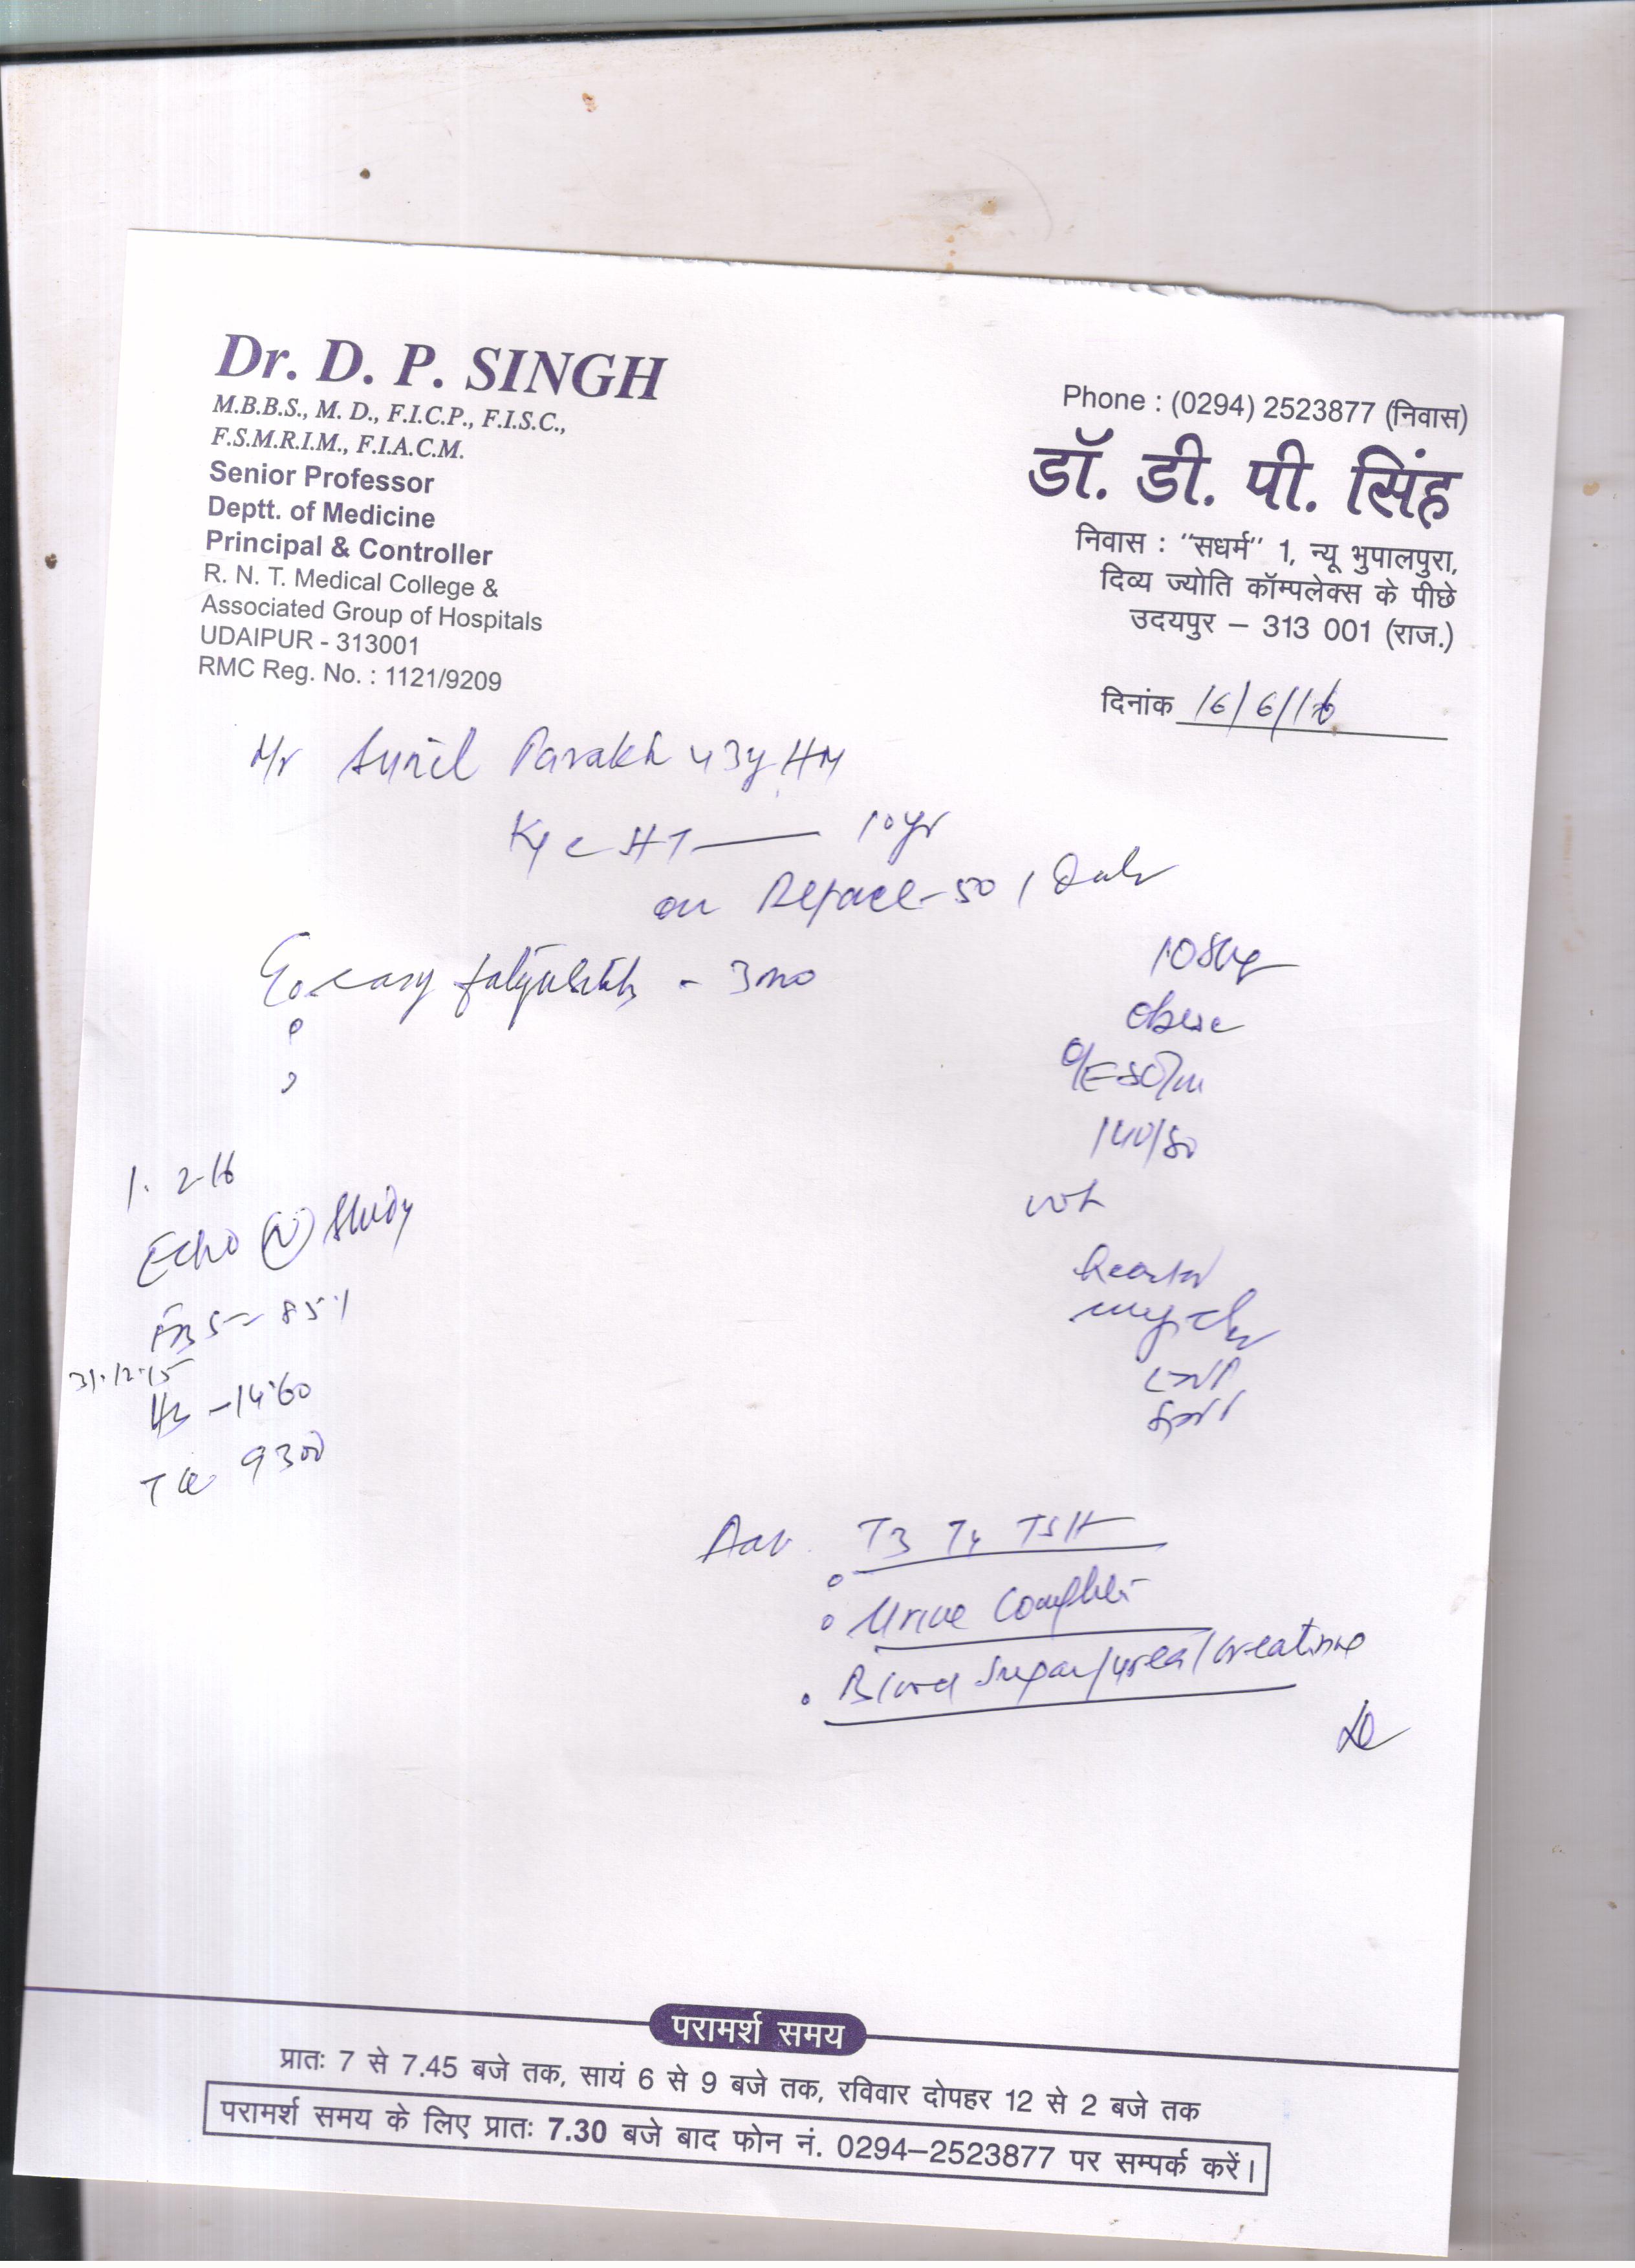 Dr. D. P. SINGH
M.B.B.S., M. D., F.I.C.P., F.I.S.C.,
F.S.M.R.I.M., F.I.A.C.M.
Senior Professor
Deptt. of Medicine
Principal & Controller
R. N. T. Medical College &
Associated Group of Hospitals
UDAIPUR - 313001
RMC Reg. No. : 1121/9209
Phone : (0294) 2523877 (निवास)
डॉ. डी. पी. सिंह
निवास : "सधर्म" 1, न्यू भुपालपुरा,
दिव्य ज्योति कॉम्पलेक्स के पीछे
उदयपुर – 313 001 (राज.)
दिनांक 16/6/16
Mr Sunil Parakh 43y HM
K/c HT — 10yr
on 50 1 Daily
easy fatiguability - 3mo
108kg
obese
O/E 80/m
140/80
Heart N
1.2.16
Echo (N) Study
FBS = 85%
31.12.15
Hb - 14.60
TLC 9300
Adv. T3 T4 TSH
Urine Complete
Blood Sugar/Urea/Creatinine
परामर्श समय
प्रातः 7 से 7.45 बजे तक, सायं 6 से 9 बजे तक, रविवार दोपहर 12 से 2 बजे तक
परामर्श समय के लिए प्रातः 7.30 बजे बाद फोन नं. 0294–2523877 पर सम्पर्क करें।